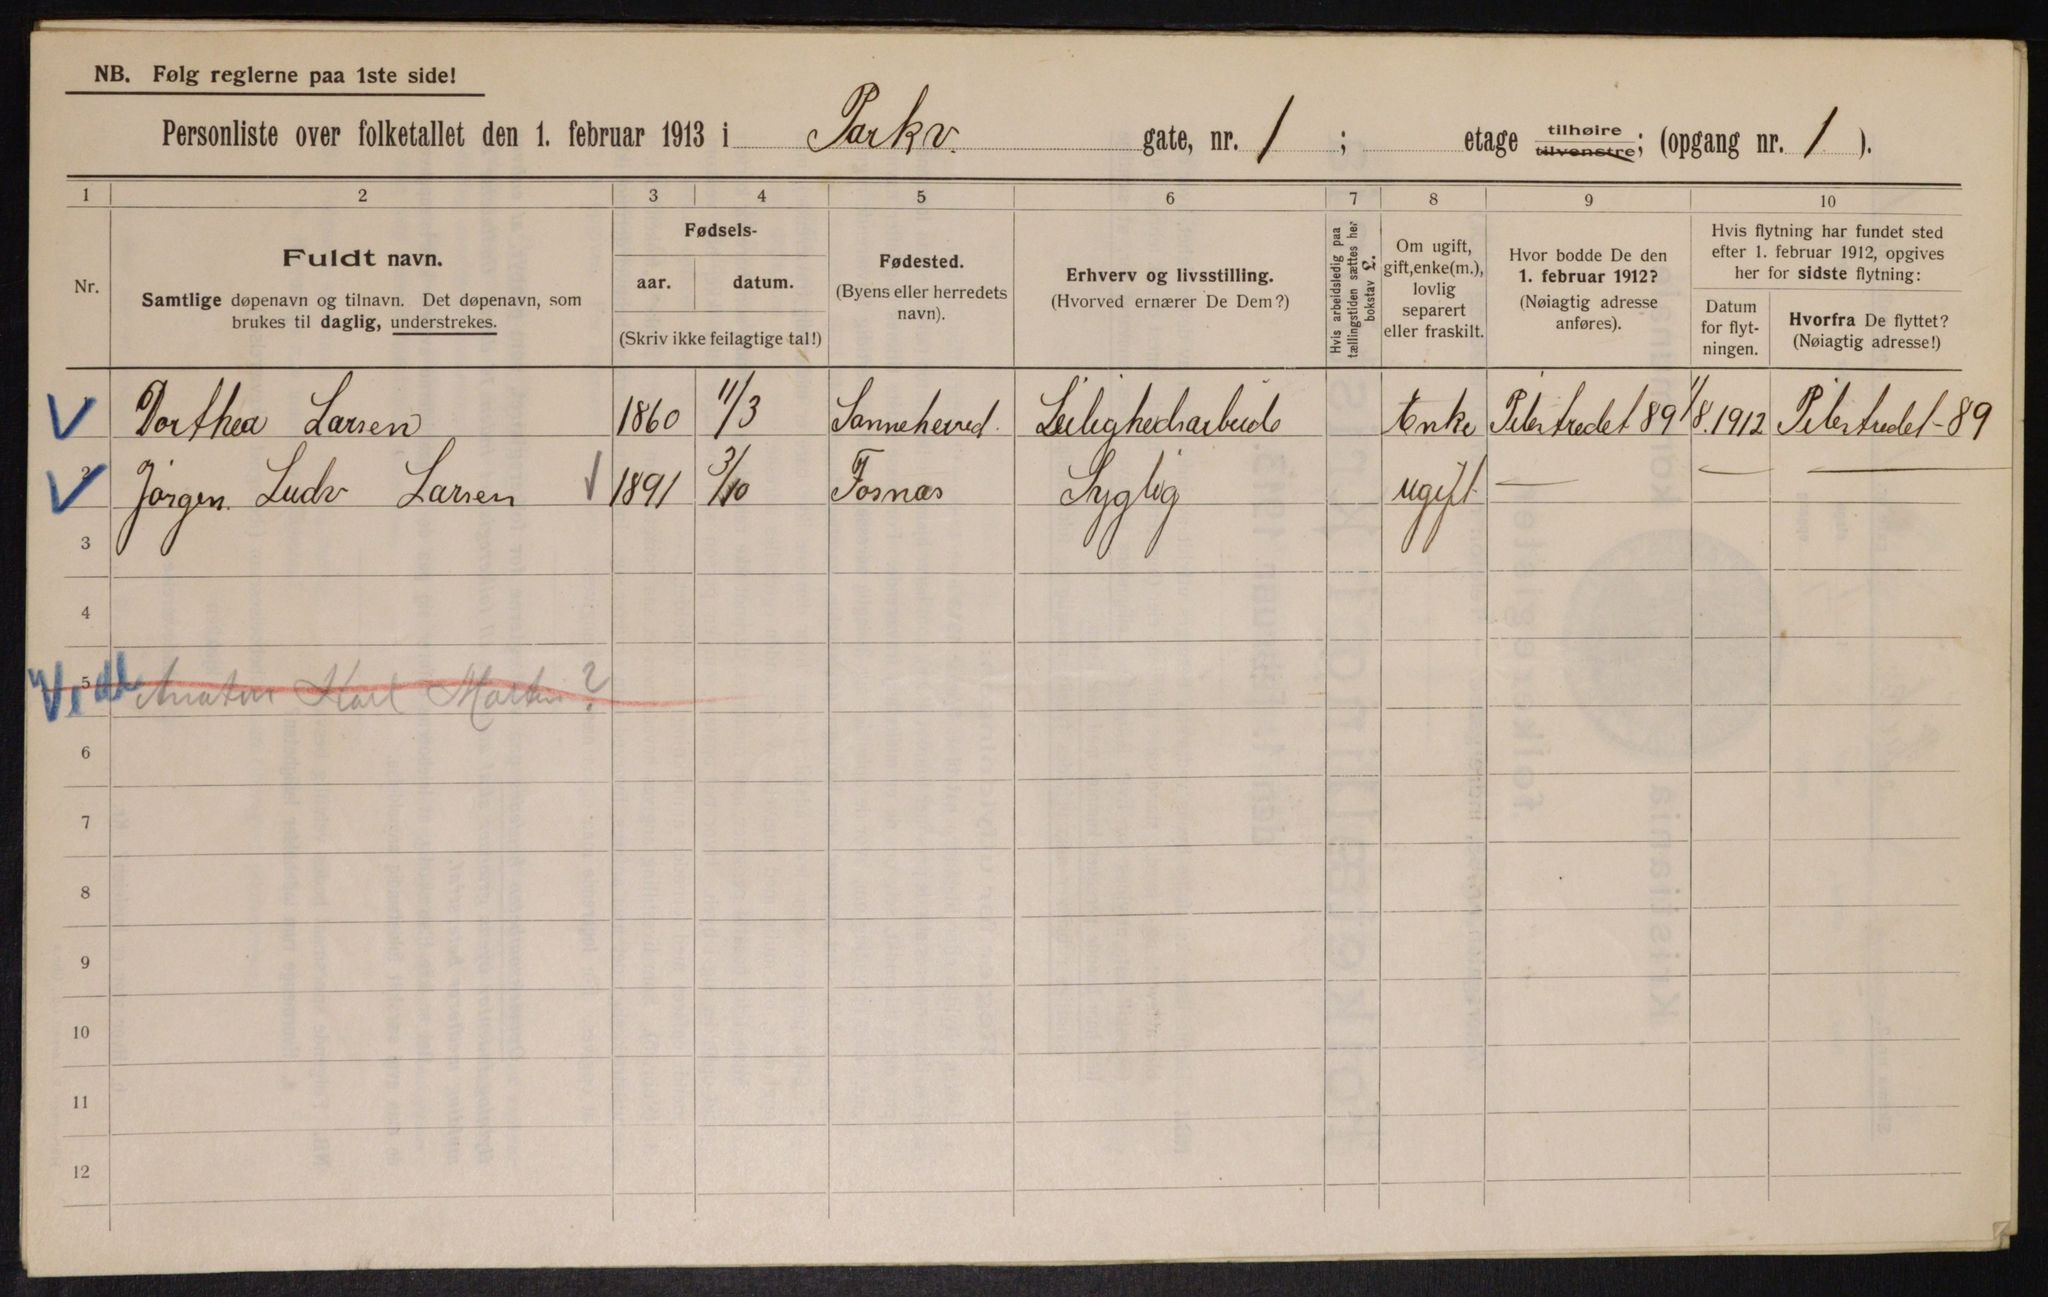 NB. Følg reglerne paa 1ste side!
Personliste over folketallet den 1. februar 1913 i Parkv. gate, nr. 1 ; etage tilhøire tilvenstre; (opgang nr. 1 ).
1 2 3 4 5 6 7 8 9 10
Nr.
Fuldt navn.
Samtlige døpenavn og tilnavn. Det døpenavn, som
brukes til daglig, understrekes.
Fødsels-
aar. datum.
(Skriv ikke feilagtige tal!)
Fødested.
(Byens eller herredets
navn).
Erhverv og livsstilling.
(Hvorved ernærer De Dem?)
Hvis arbeidsledig paa
tællingstiden sættes her
bokstav L.
Om ugift,
gift, enke(m.),
lovlig
separert
eller fraskilt.
Hvor bodde De den
1. februar 1912?
(Nøiagtig adresse
anføres).
Hvis flytning har fundet sted
efter 1. februar 1912, opgives
her for sidste flytning:
Datum
for flyt-
ningen.
Hvorfra De flyttet?
(Nøiagtig adresse!)
Dorthea Larsen 1860 11/3 Sanneherred. Leilighedsarbeide Enke Pilestredet 89 1/8. 1912 Pilestredet - 89
2 Jørgen Ludv Larsen 1891 3/10 Fosnæs Syglig ugift — — —
3
4
5 Karl Martin ?
6
7
8
9
10
11
12